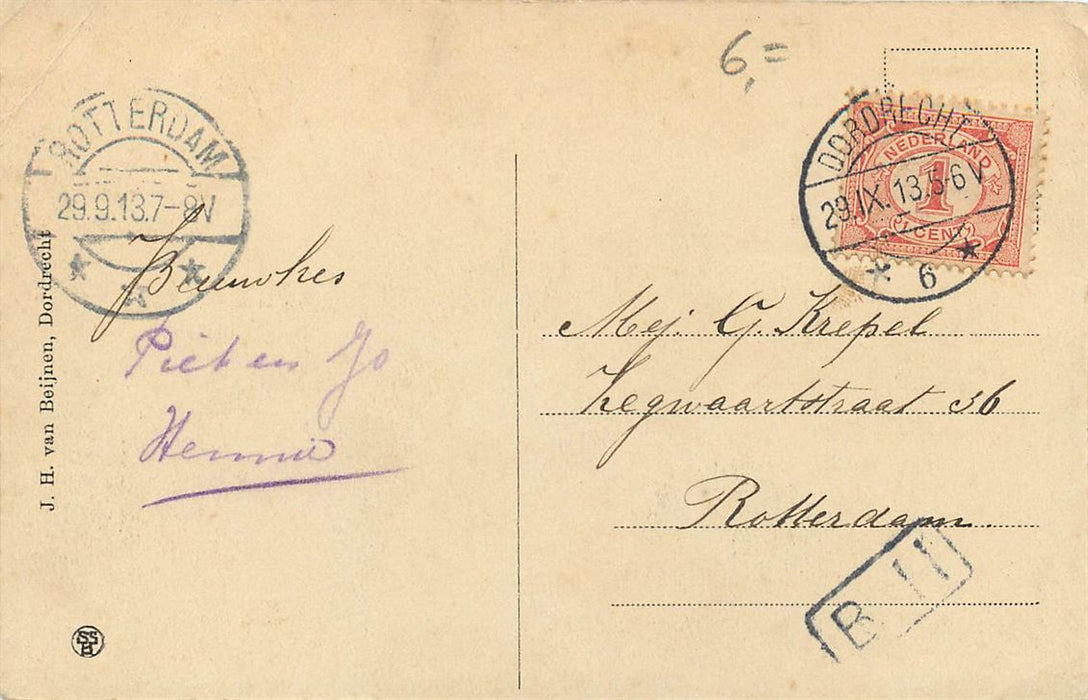 6,=
ROTTERDAM
29.9.13.7-8V
DORDRECHT
29.IX.13.5-6V
6
NEDERLAND
1
CENT
Piet en Jo
Hennie
Mej. G. Krepel
Zegwaartstraat 36
Rotterdam.
B 11
J. H. van Beijnen, Dordrecht
SSH